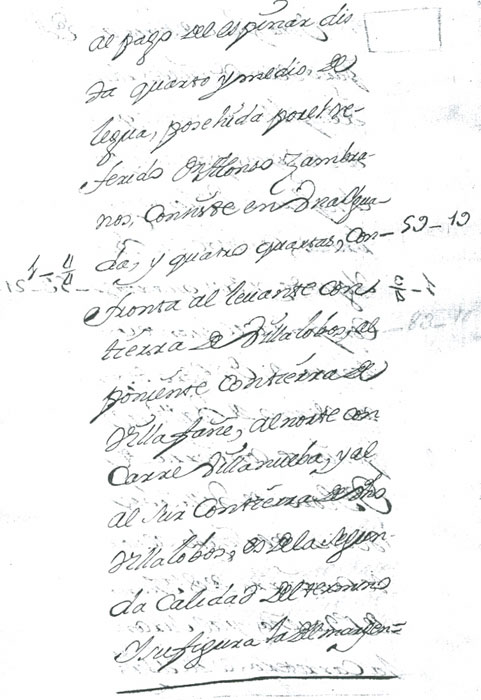 al pago del espinar dis
ta quarto y medio, de
legua, posehida por el re-
ferido Dn Alonso Zambra-
nos, consiste en Una Agua-
da, y quatro quartas, con-
fronta al levante con
tierra de Villalobos, al
poniente con tierra de
Villafañe, al norte con
Carre Villanueba, y al
al sur con tierra de dho
Villalobos, es de la segun-
da Calidad del termino
Y su figura la del margen=